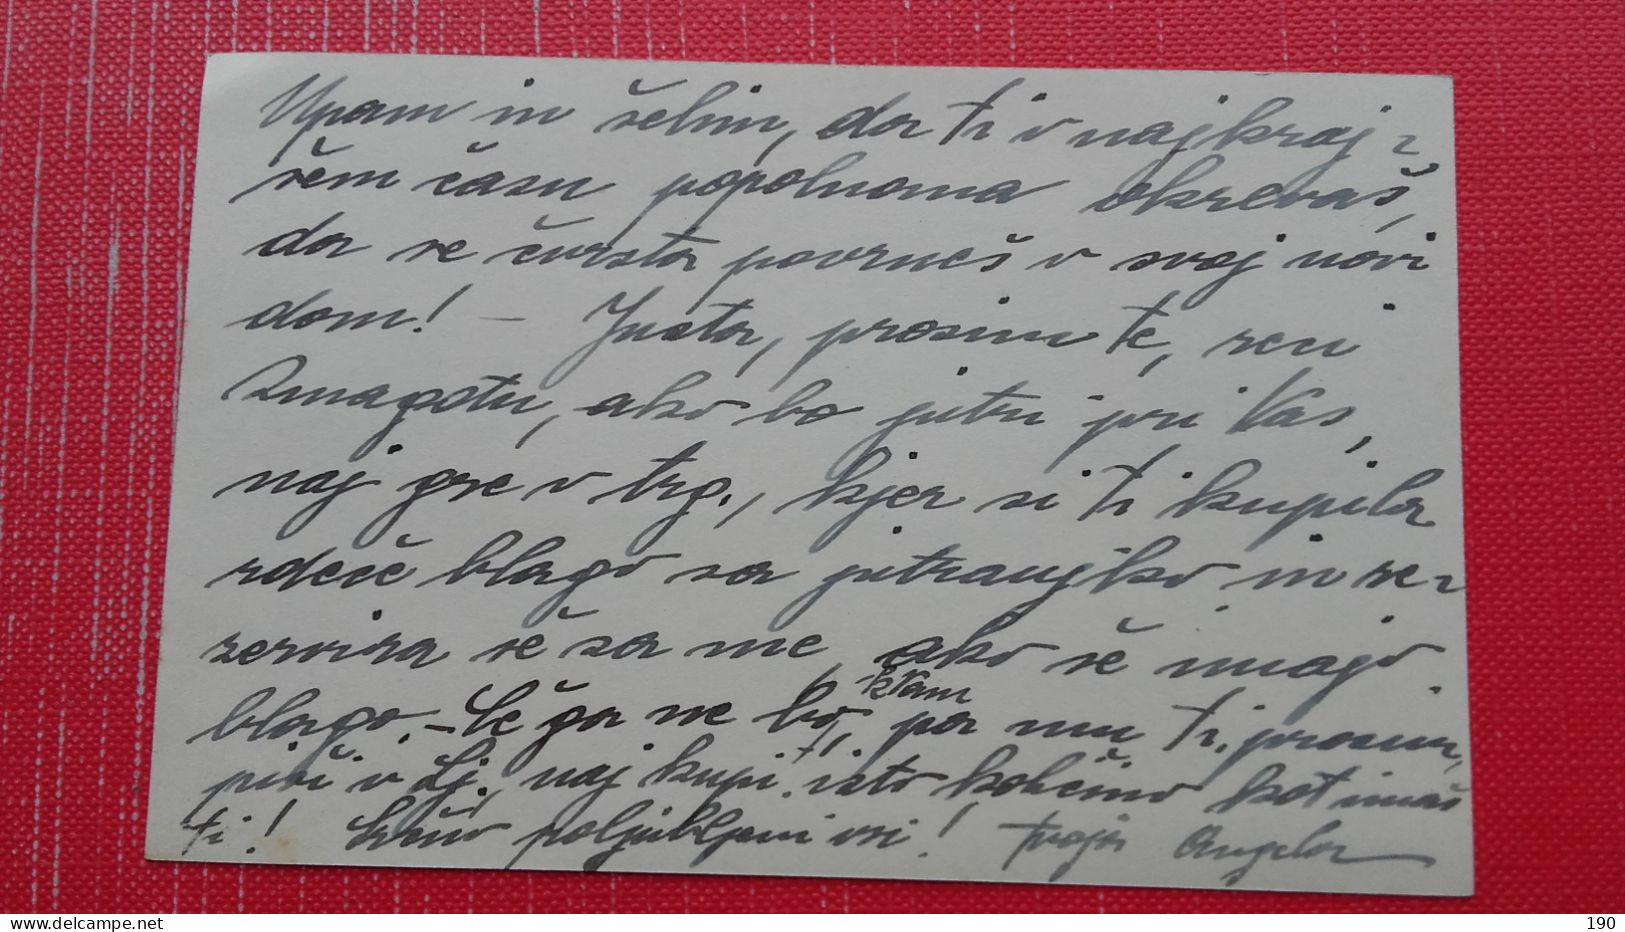 Upam in želim, da ti v najkraj-
šem času popolnoma okrevaš,
da se čvrsta povrneš v svoj novi
dom! – Justa, prosim te, reci
Zmagotu, ako bo jutri pri Vas,
naj gre v trg., kjer si ti kupila
rdeče blago za jutranjko in re-
zervira še za me, ako še imajo
blago. – Če ga ne bo k Vam, pa mu ti, prosim,
piši v Lj., naj kupi isto količino kot imaš
ti! Lepo poljubljeni vsi! tvoja Angela
190